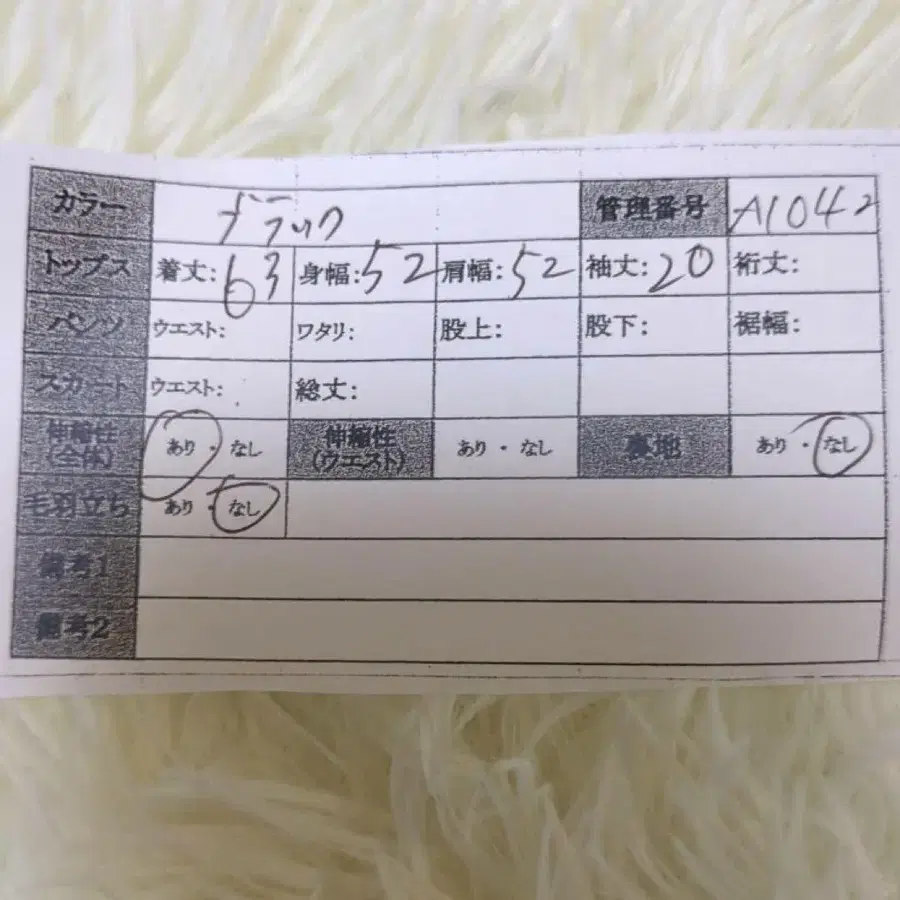 カラー ブラック 管理番号 A1042
トップス 着丈:63 身幅:52 肩幅:52 袖丈:20 裄丈:
パンツ ウエスト: ワタリ: 股上: 股下: 裾幅:
スカート ウエスト: 総丈:
伸縮性(全体) あり・なし 伸縮性(ウエスト) あり・なし 裏地 あり・なし
毛羽立ち あり・なし
備考1
備考2